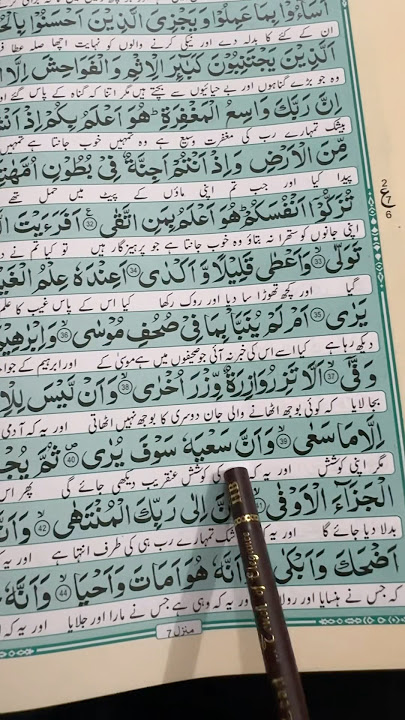 اَسَآءُوْا بِمَا عَمِلُوْا وَيَجْزِيَ الَّذِيْنَ اَحْسَنُوْا
ان کے کئے کا بدلہ دے اور نیکی کرنے والوں کو نہایت اچھا صلہ عطا
اَلَّذِيْنَ يَجْتَنِبُوْنَ كَبٰٓئِرَ الْاِثْمِ وَالْفَوَاحِشَ اِلَّا
وہ جو بڑے گناہوں اور بے حیائیوں سے بچتے ہیں مگر اتنا کہ گناہ کے پاس گئے اور
اِنَّ رَبَّكَ وَاسِعُ الْمَغْفِرَةِ ؕ هُوَ اَعْلَمُ بِكُمْ اِذْ
بیشک تمہارے رب کی مغفرت وسیع ہے وہ تمہیں خوب جانتا ہے تمہیں
مِّنَ الْاَرْضِ وَاِذْ اَنْتُمْ اَجِنَّةٌ فِيْ بُطُوْنِ
پیدا کیا اور جب تم اپنی ماؤں کے پیٹ میں حمل تھے
تُزَكُّوْۤا اَنْفُسَكُمْ ؕ هُوَ اَعْلَمُ بِمَنِ اتَّقٰى ۝۳۲ اَفَرَءَيْتَ
اپنی جانوں کو ستھرا نہ بتاؤ وہ خوب جانتا ہے جو پرہیزگار ہیں تو کیا تم نے
تَوَلّٰى ۝۳۳ وَاَعْطٰى قَلِيْلًا وَّاَكْدٰى ۝۳۴ اَعِنْدَهٗ عِلْمُ
گیا اور کچھ تھوڑا سا دیا اور روک رکھا کیا اس کے پاس غیب کا
يَرٰى ۝۳۵ اَمْ لَمْ يُنَبَّاْ بِمَا فِيْ صُحُفِ مُوْسٰى ۝۳۶
دیکھ رہا ہے کیا اسے اس کی خبر نہ آئی جو صحیفوں میں ہے موسیٰ کے اور ابراہیم کے جو
وَفّٰٓى ۝۳۷ اَلَّا تَزِرُ وَازِرَةٌ وِّزْرَ اُخْرٰى ۝۳۸ وَاَنْ لَّيْسَ
بجا لایا کہ کوئی بوجھ اٹھانے والی جان دوسری کا بوجھ نہیں اٹھاتی اور یہ کہ آدمی
اِلَّا مَا سَعٰى ۝۳۹ وَاَنَّ سَعْيَهٗ سَوْفَ يُرٰى ۝۴۰ ثُمَّ
مگر اپنی کوشش اور یہ کہ کی کوشش عنقریب دیکھی جائے گی پھر اس
الْجَزَآءَ الْاَوْفٰى ۝۴۱ اِلٰى رَبِّكَ الْمُنْتَهٰى ۝۴۲
بدلا دیا جائے گا اور یہ تمہارے رب ہی کی طرف انتہا ہے اور یہ
اَضْحَكَ وَاَبْكٰى هُوَ اَمَاتَ وَاَحْيَا ۝۴۴ وَاَنَّهٗ
کہ جس نے ہنسایا اور رولایا اور یہ کہ وہی ہے جس نے مارا اور جلایا اور یہ کہ
منزل 7
2
ع
7
6